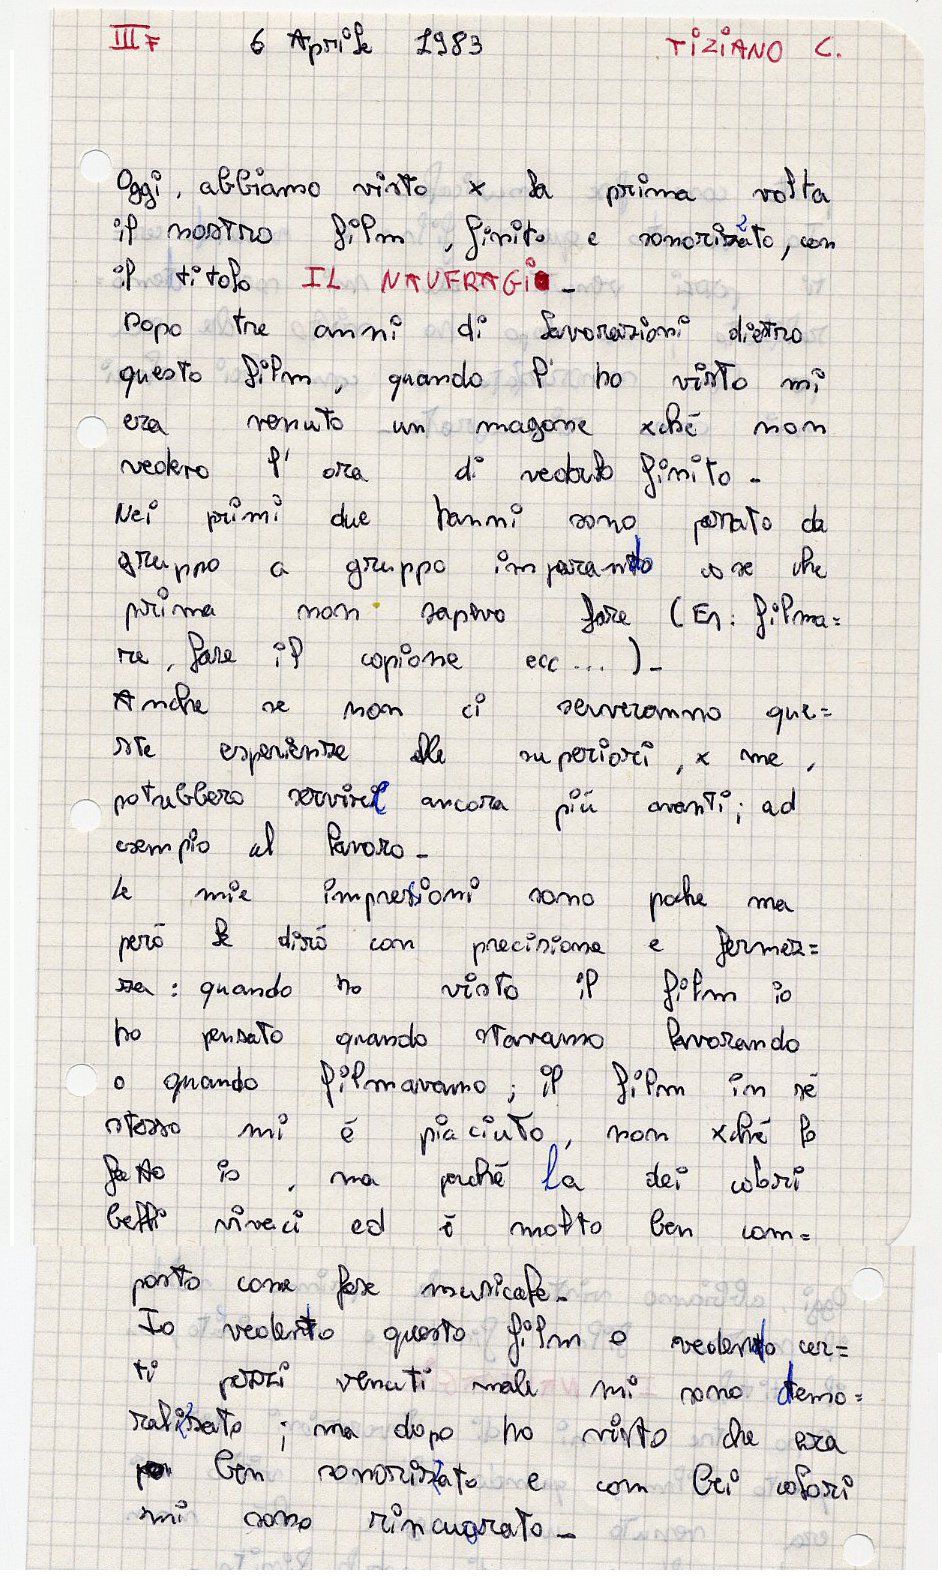 III F 6 Aprile 1983 TIZIANO C.
Oggi, abbiamo visto x la prima volta
il nostro film, finito e sonorizzato, con
il titolo IL NAUFRAGIO -
Dopo tre anni di lavorazioni dietro
questo film, quando l' ho visto mi
era venuto un magone xché non
vedevo l' ora di vederlo finito -
Nei primi due hanni sono passato da
gruppo a gruppo imparando cose che
prima non sapevo fare (Es: filma=
re, fare il copione ecc...) -
Anche se non ci serveranno que=
ste esperienze alle superiori, x me,
potrebbero servirci ancora più avanti; ad
esempio al lavoro -
Le mie impressioni sono poche ma
peró le diró con precisione e fermez=
za: quando ho visto il film io
ho pensato quando stavamo lavorando
o quando filmavamo; il film in sé
stesso mi é piaciuto, non xché lo
fatto io, ma perché la dei colori
belli vivaci ed é molto ben com=
posto come fase musicale -
Io vedendo questo film o vedendo cer=
ti pezzi venuti male mi sono demo=
ralizzato; ma dopo ho visto che era
ben sonorizzato e con bei colori
mi sono rincuorato -